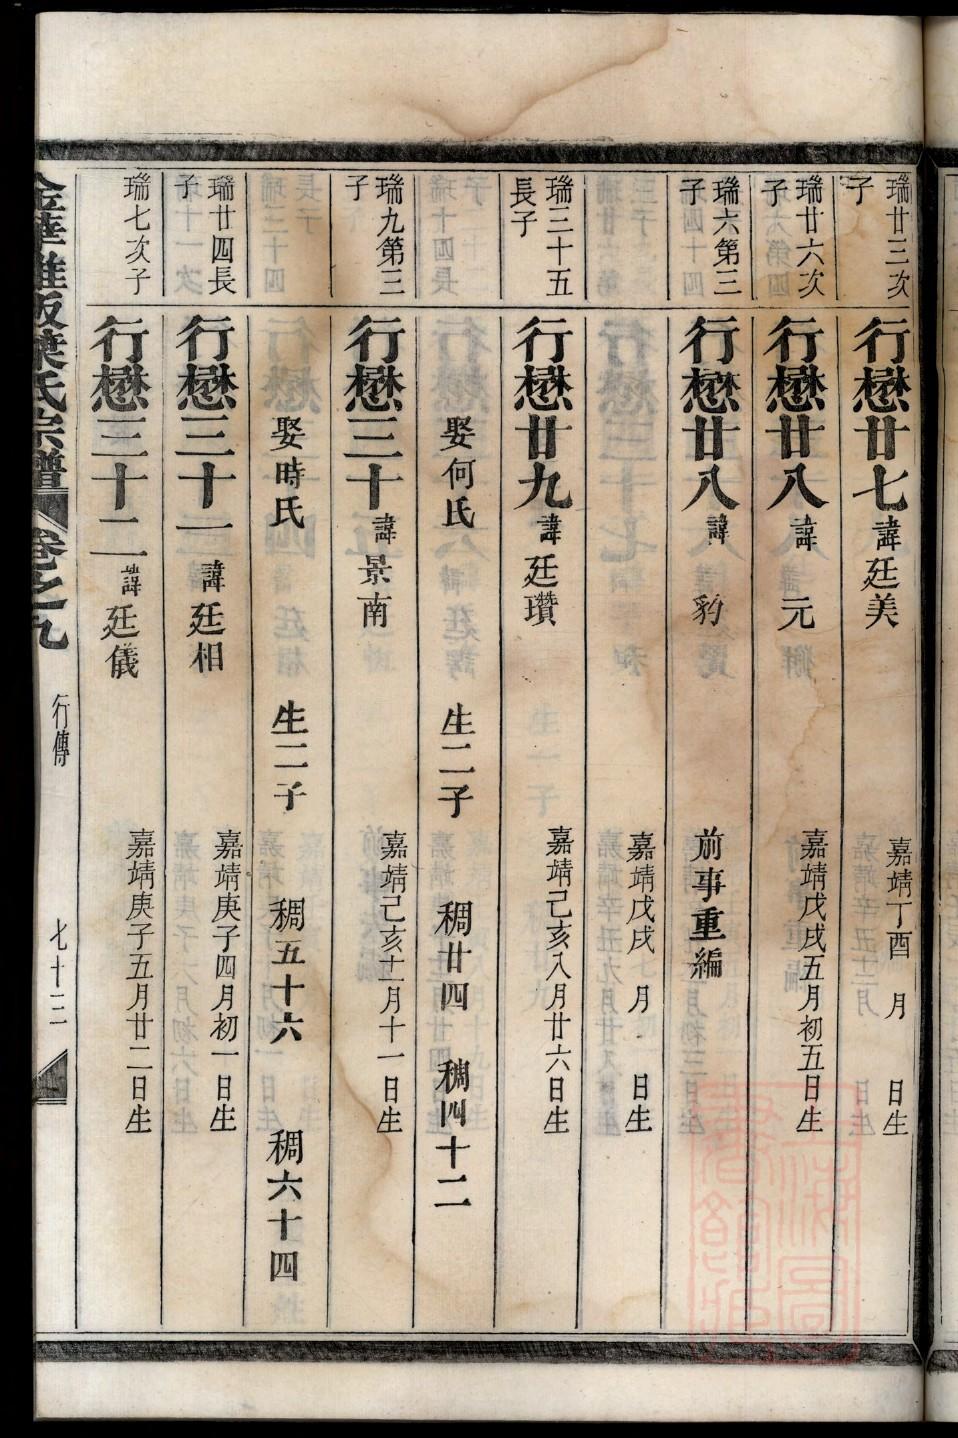 瑞廿三次子
行懋廿七 諱廷美 嘉靖丁酉 月 日生
瑞廿六次子
行懋廿八 諱元 嘉靖戊戌五月初五日生
瑞六第三子
行懋廿八 諱豹 前事重編
嘉靖戊戌 月 日生
瑞三十五長子
行懋廿九 諱廷瓚 嘉靖己亥八月廿六日生
娶何氏 生二子 稠廿四 稠四十二
瑞九第三子
行懋三十 諱景南 嘉靖己亥十一月十一日生
娶時氏 生二子 稠五十六 稠六十四
瑞廿四長子
行懋三十一 諱廷相 嘉靖庚子四月初一日生
瑞七次子
行懋三十二 諱廷儀 嘉靖庚子五月廿二日生
氏宗譜 卷之九 行傳 七十三